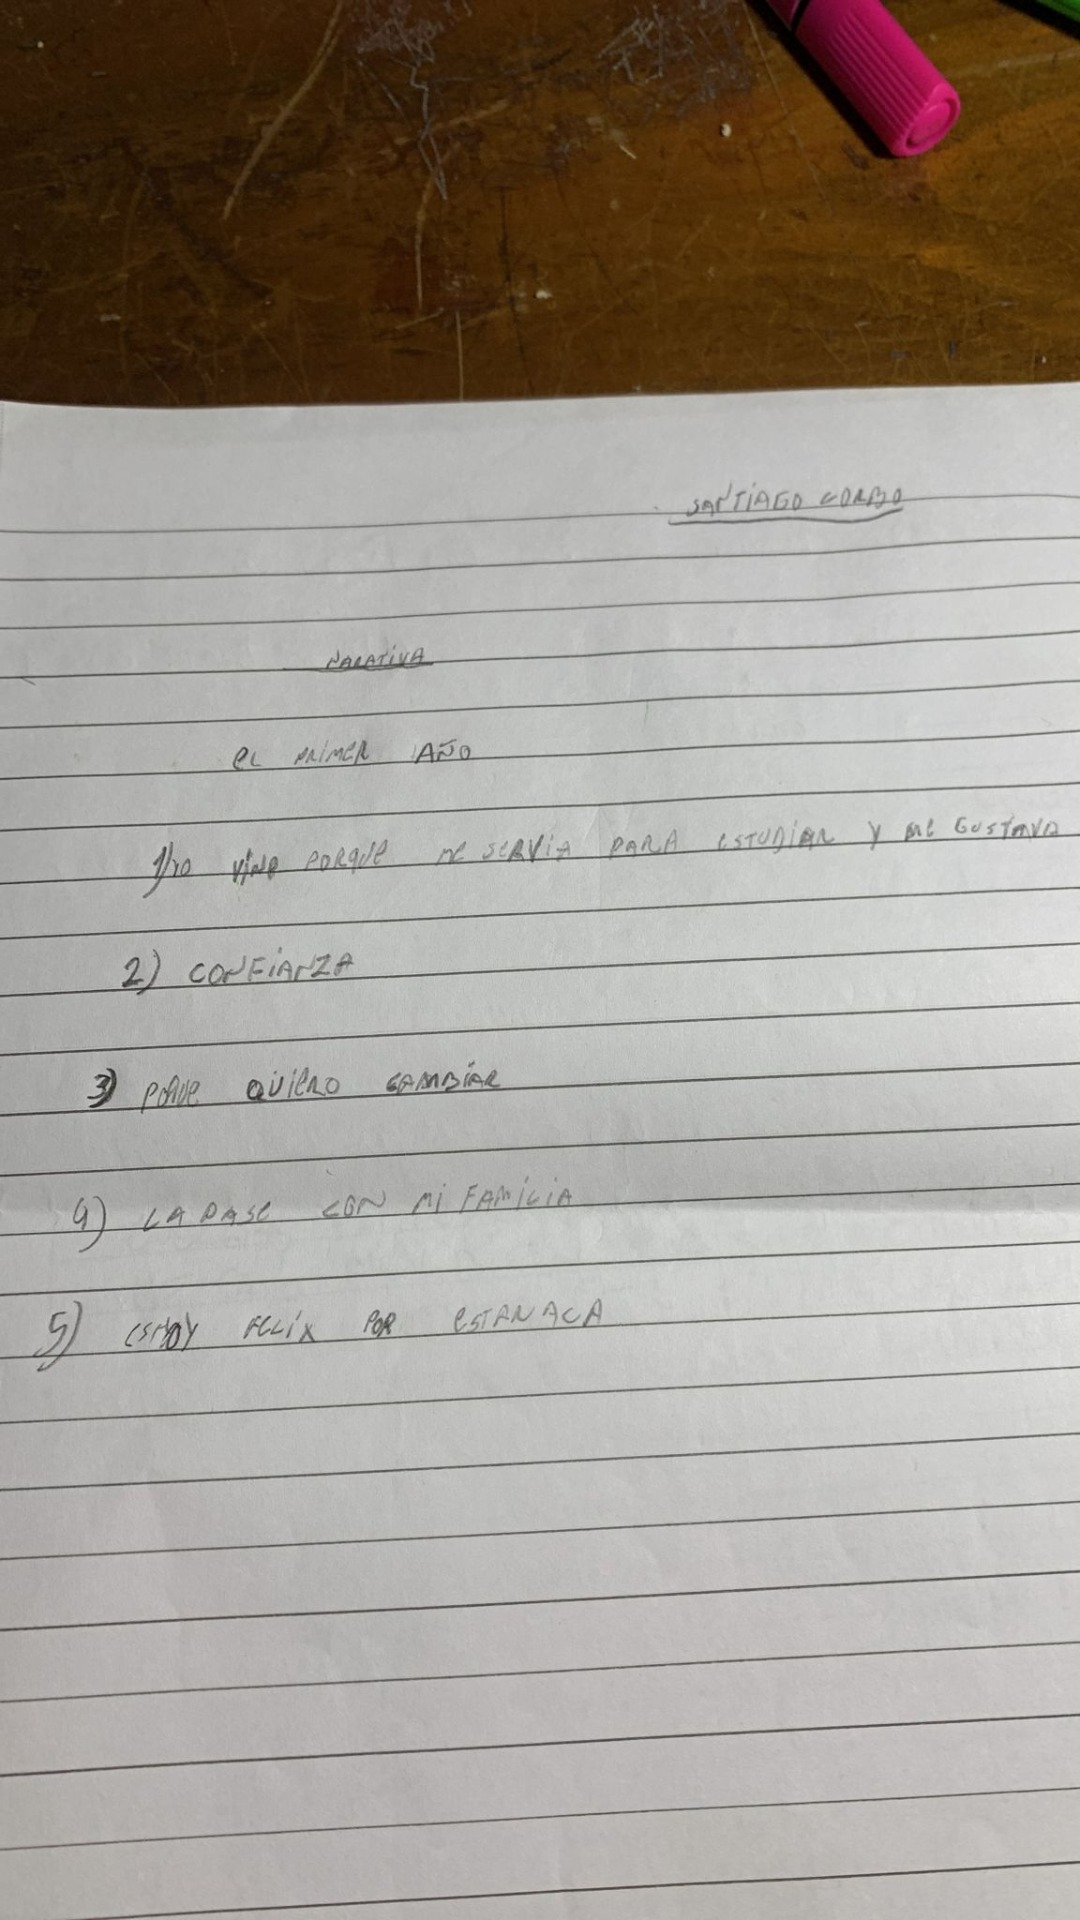 SANTIAGO CORBO
NARATIVA
EL PRIMER AÑO
1) YO VINE PORQUE ME SERVIA PARA ESTUDIAR Y ME GUSTAVA
2) CONFIANZA
3) PORQUE QUIERO CAMBIAR
4) LA PASE CON MI FAMILIA
5) ESTOY FELIX POR ESTAR ACA